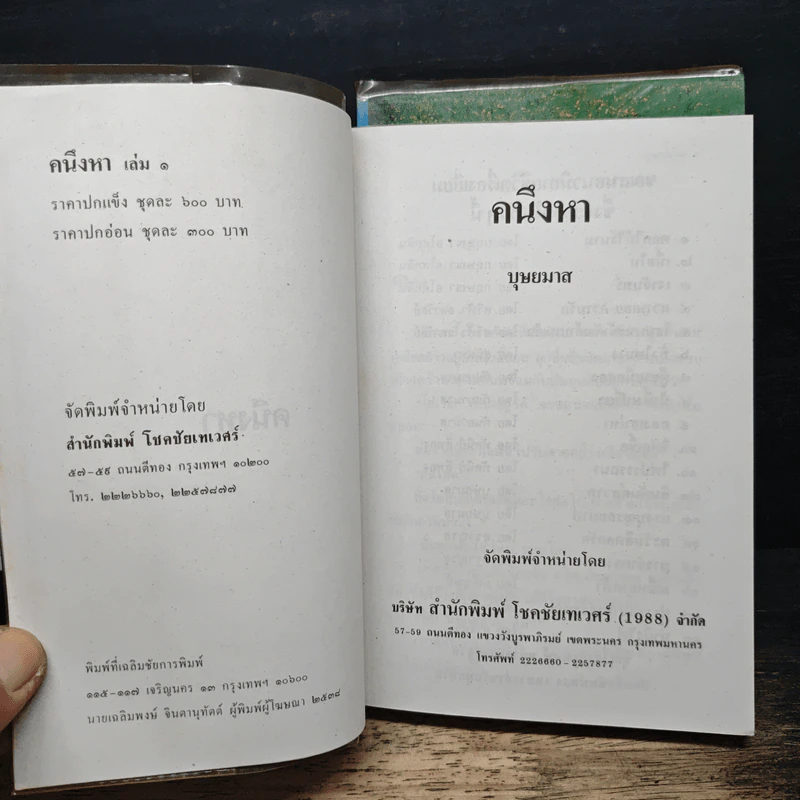 คนึงหา เล่ม ๑
ราคาปกแข็ง ชุดละ ๖๐๐ บาท
ราคาปกอ่อน ชุดละ ๓๐๐ บาท
จัดพิมพ์จำหน่ายโดย
สำนักพิมพ์ โชคชัยเทเวศร์
๕๗-๕๙ ถนนตีทอง กรุงเทพฯ ๑๐๒๐๐
โทร. ๒๒๒๖๖๖๐, ๒๒๕๗๘๗๗
พิมพ์ที่เฉลิมชัยการพิมพ์
๑๑๕-๑๑๗ เจริญนคร ๑๓ กรุงเทพฯ ๑๐๖๐๐
นายเฉลิมพงษ์ จินดานุทัตต์ ผู้พิมพ์ผู้โฆษณา ๒๕๓๘
คนึงหา
บุษยมาส
จัดพิมพ์จำหน่ายโดย
บริษัท สำนักพิมพ์ โชคชัยเทเวศร์ (1988) จำกัด
57-59 ถนนตีทอง แขวงวังบูรพาภิรมย์ เขตพระนคร กรุงเทพมหานคร
โทรศัพท์ 2226660-2257877